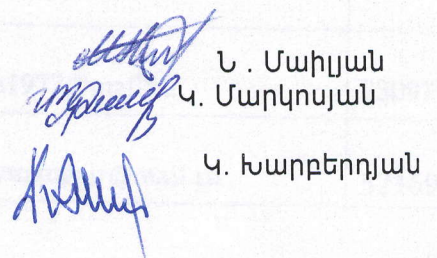 Ն . Մաիլյան
Կ. Մարկոսյան
Կ. Խարբերդյան